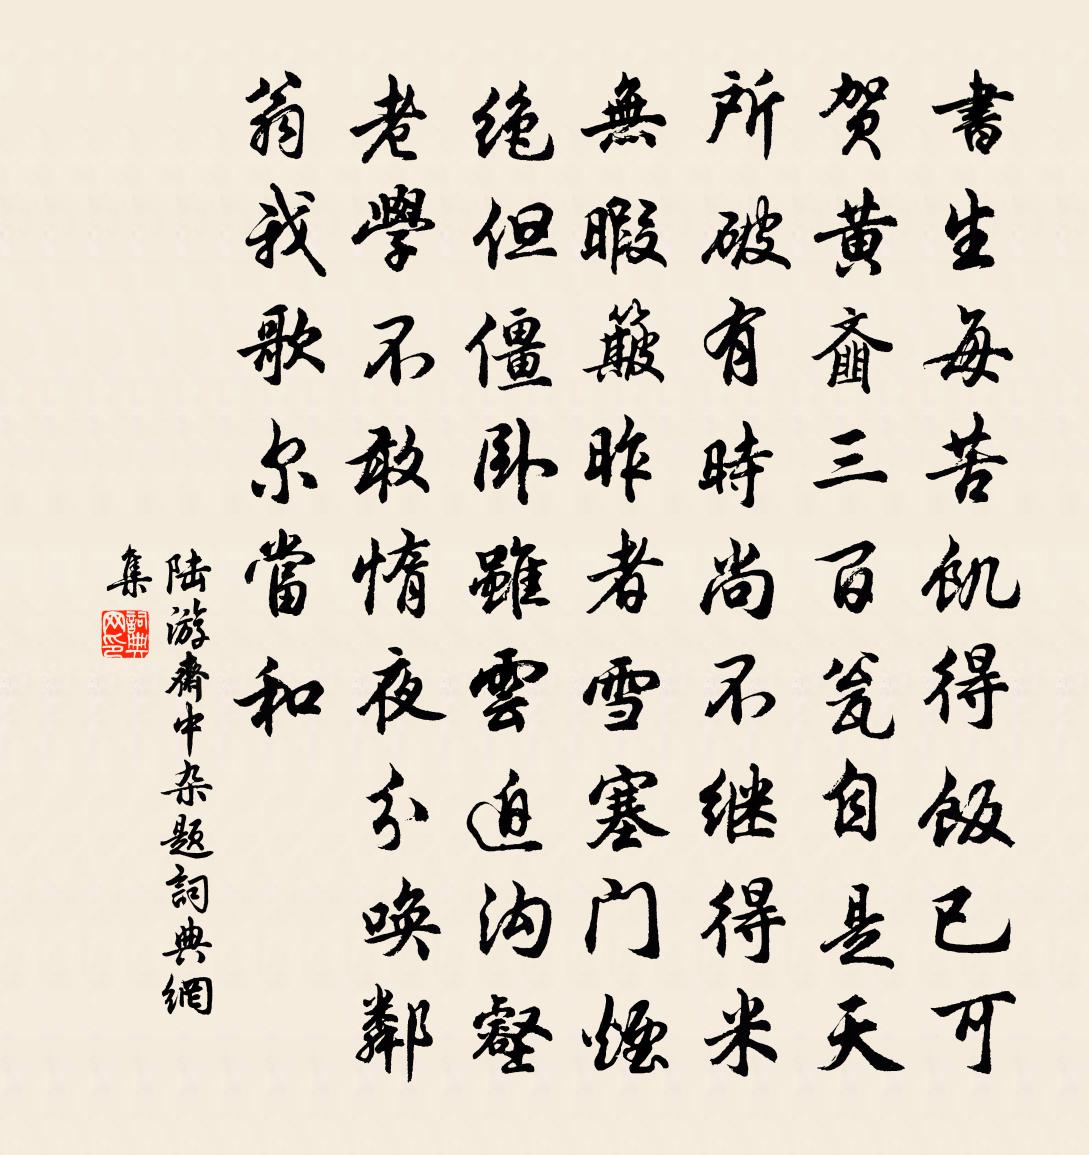 書生每苦飢得飯已可
賀黄齑三百瓮自是天
所破有時尚不继得米
無暇簸昨者雪塞门煙
绝但僵卧雖雲迫沟壑
老學不敢惰夜分唤鄰
翁我歌尔當和
陆游斋中杂题詞典網
集
詞典
网印